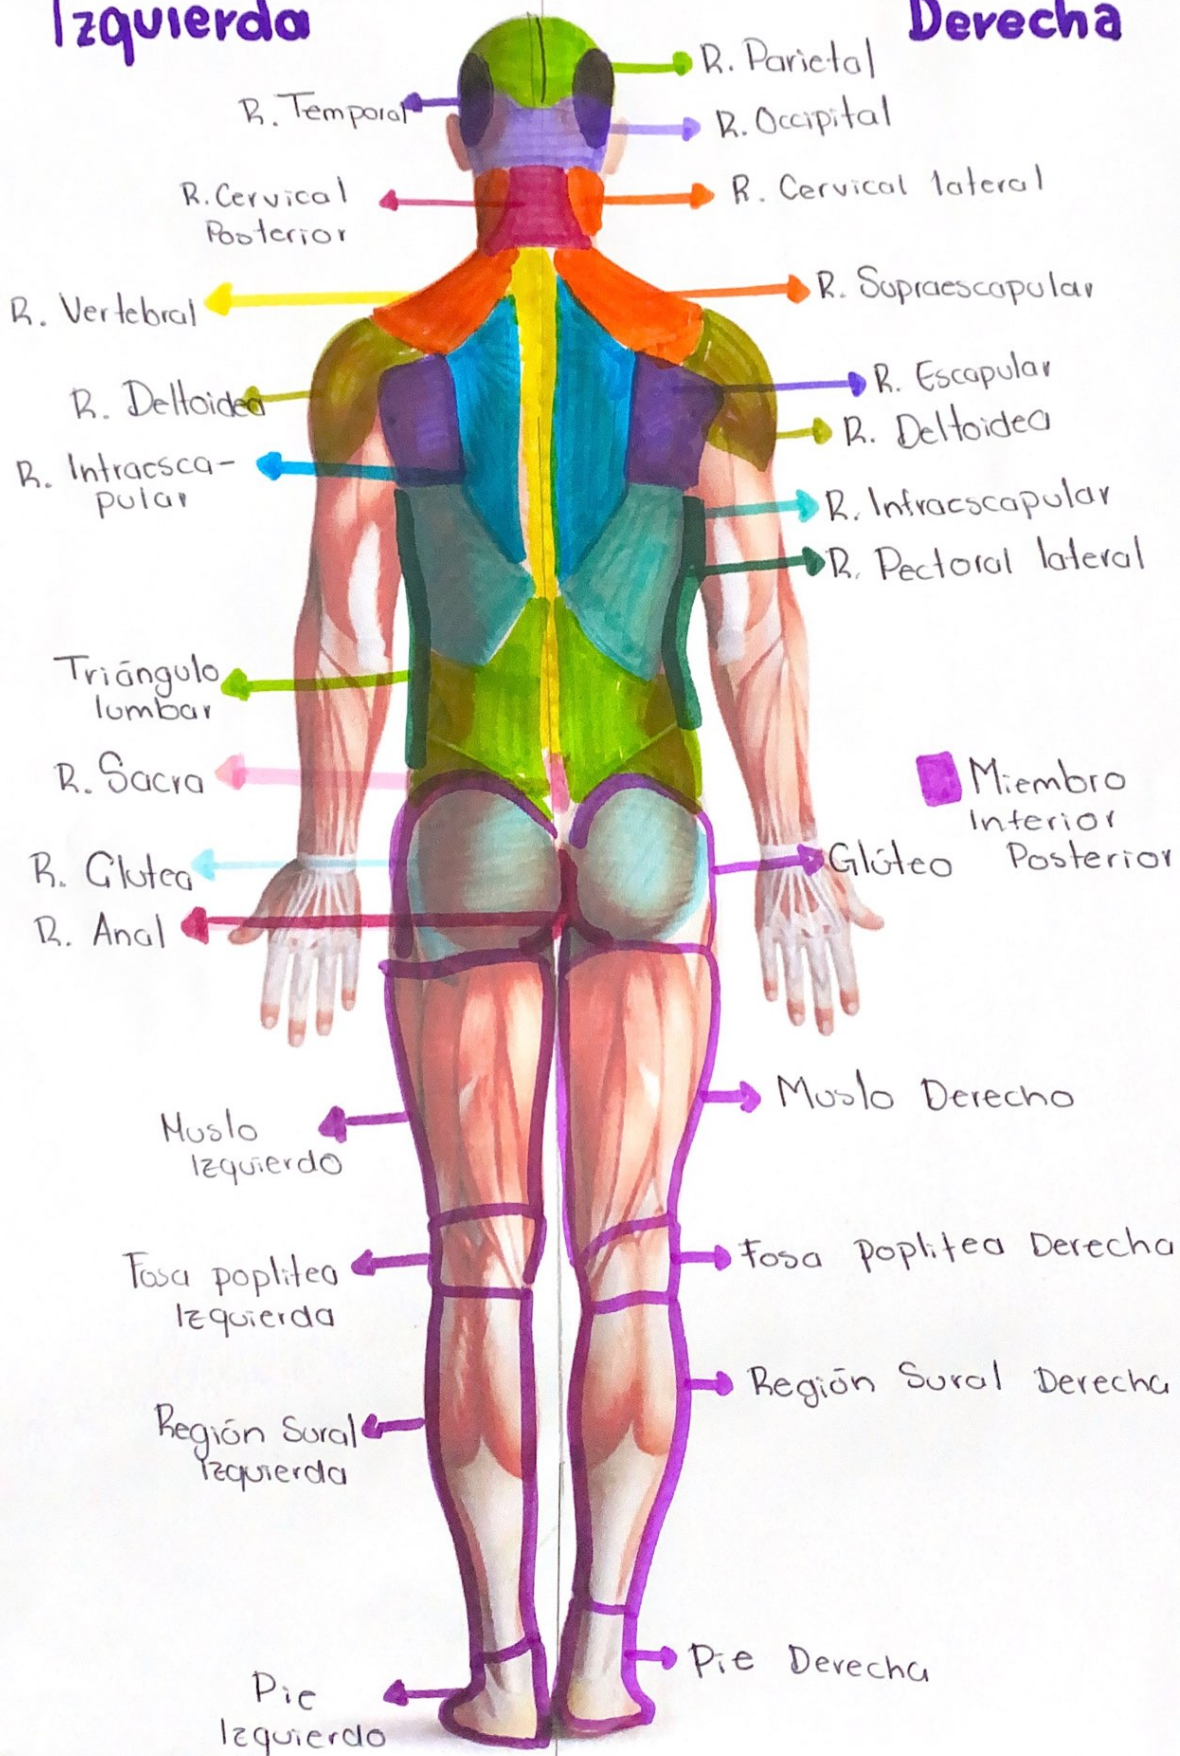 Izquierda
Derecha
R. Parietal
R. Temporal
R. Occipital
R. Cervical
Posterior
R. Cervical lateral
R. Vertebral
R. Supraescapular
R. Escapular
R. Deltoidea
R. Deltoidea
R. Intraesca-
pular
R. Infraescapular
R. Pectoral lateral
Triángulo
lumbar
R. Sacra
Miembro
Inferior
Posterior
R. Glutea
Glúteo
R. Anal
Muslo Derecho
Muslo
Izquierdo
Fosa poplitea Derecha
Fosa poplitea
Izquierda
Región Sural Derecha
Región Sural
Izquierda
Pie Derecha
Pie
Izquierdo